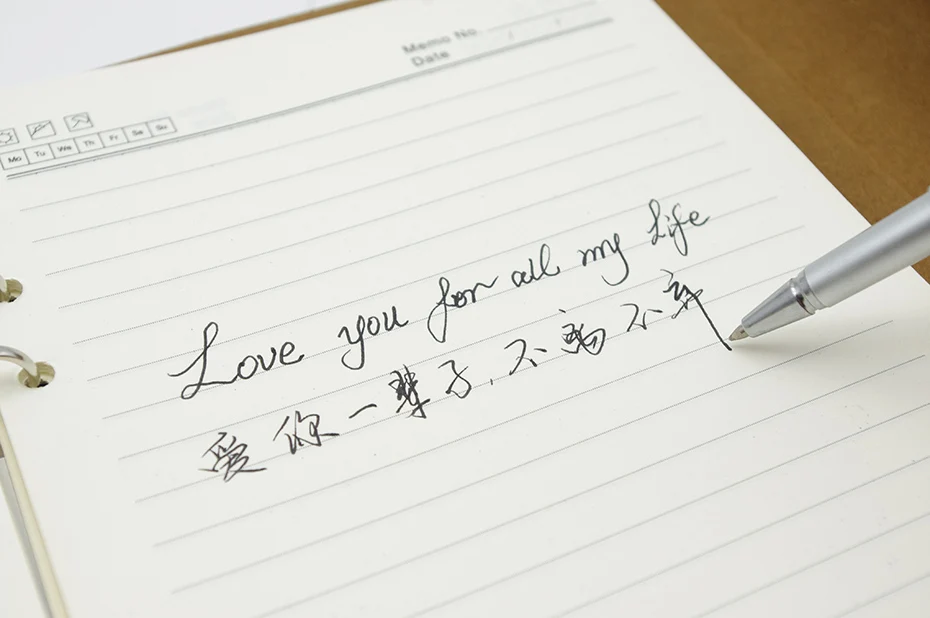 Memo No.
Date
Mo Tu We Th Fr Sa Su
Love you for all my life
爱你一辈子,不离不弃